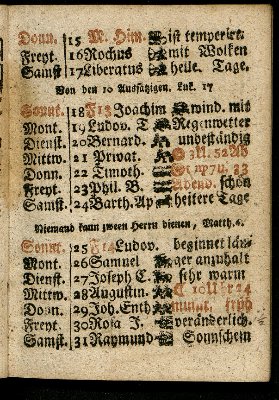 Donn. 15 M. Him. ist temperirt.
Freyt. 16 Rochus mit Wolken
Samst 17 Liberatus helle. Tage.
Von den 10 Aussätzigen. Luk. 17
Sonnt. 18 F13 Joachim wind. mit
Mont. 19 Ludov. T. Regenwetter
Dienst. 20 Bernard. unbeständig
Mittw. 21 Privat. 52
Donn. 22 Timoth. 33
Freyt. 23 Phil. B. Abend. schön
Samst. 24 Barth. Ap heitere Tage
Niemand kann zween Herrn dienen, Matth. 6.
Sonnt. 25 F14 Ludov. beginnet län
Mont. 26 Samuel ger anzuhalt
Dienst. 27 Joseph C. sehr warm
Mittw. 28 Augustin. 10 Uhr 24
Donn. 29 Joh. Enth minut. früh
Freyt. 30 Rosa J. veränderlich.
Samst. 31 Raymund Sonnschein